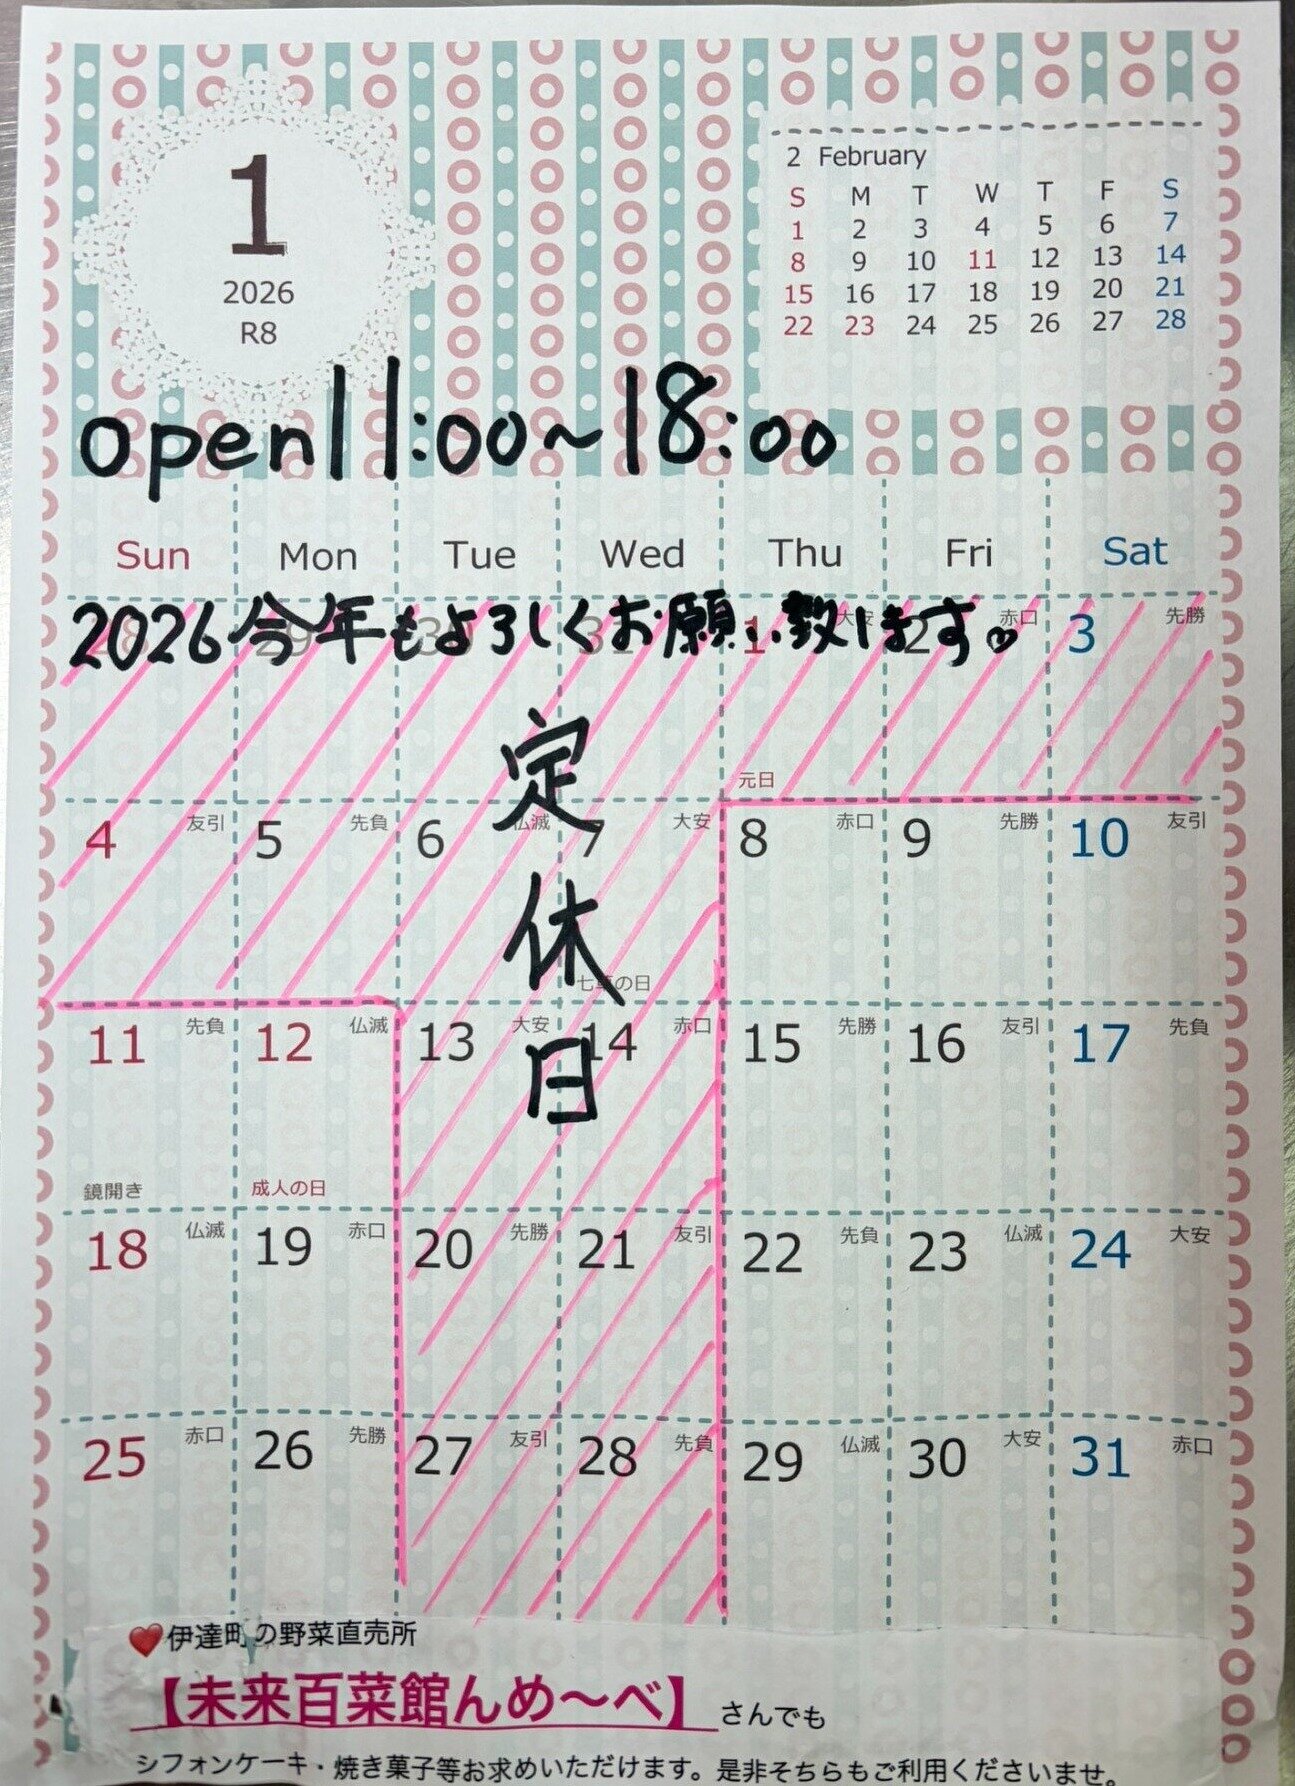 1
2026
R8
2 February
S M T W T F S
1 2 3 4 5 6 7
8 9 10 11 12 13 14
15 16 17 18 19 20 21
22 23 24 25 26 27 28
open 11:00~18:00
Sun Mon Tue Wed Thu Fri Sat
2026 今年もよろしくお願い致します。
28 29 30 31 1 大安 2 赤口 3 先勝
元日
定休日
4 友引 5 先負 6 仏滅 7 大安 8 赤口 9 先勝 10 友引
七草の日
11 先負 12 仏滅 13 大安 14 赤口 15 先勝 16 友引 17 先負
鏡開き 成人の日
18 仏滅 19 赤口 20 先勝 21 友引 22 先負 23 仏滅 24 大安
25 赤口 26 先勝 27 友引 28 先負 29 仏滅 30 大安 31 赤口
❤伊達町の野菜直売所
【未来百菜館んめ〜べ】さんでも
シフォンケーキ・焼き菓子等お求めいただけます。是非そちらもご利用くださいませ。